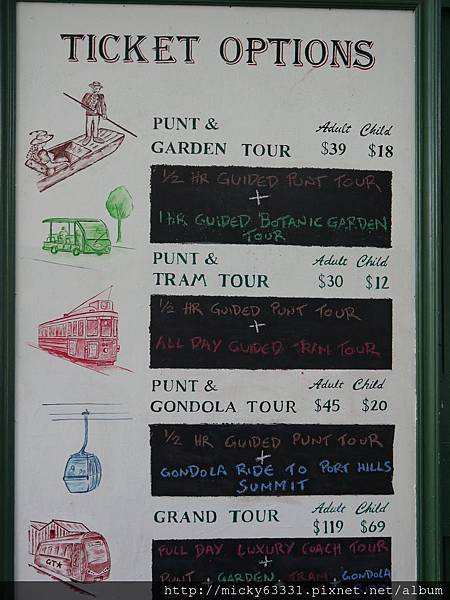 TICKET OPTIONS
PUNT &
GARDEN TOUR
Adult Child
$39 $18
1/2 HR GUIDED PUNT TOUR
+
1 HR GUIDED BOTANIC GARDEN
TOUR
PUNT &
TRAM TOUR
Adult Child
$30 $12
1/2 HR GUIDED PUNT TOUR
+
ALL DAY GUIDED TRAM TOUR
PUNT &
GONDOLA TOUR
Adult Child
$45 $20
1/2 HR GUIDED PUNT TOUR
+
GONDOLA RIDE TO PORT HILLS
SUMMIT
GRAND TOUR
Adult Child
$119 $69
FULL DAY LUXURY COACH TOUR
+
PUNT, GARDEN, TRAM, GONDOLA
GTA
http://micky6331.pixnet.net/album